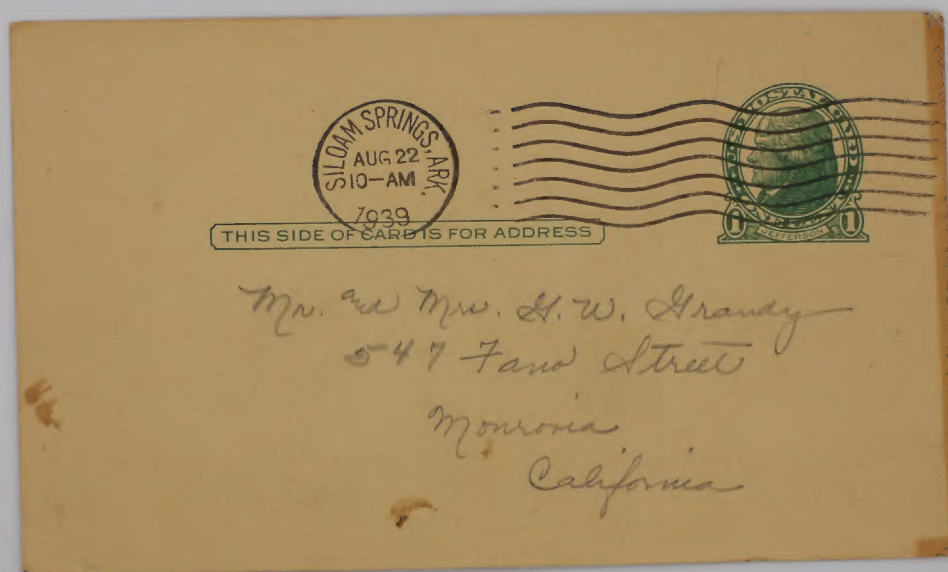 SILOAM SPRINGS, ARK.
AUG 22
10-AM
1939
U.S. POSTAL CARD
ONE CENT
1 JEFFERSON 1
THIS SIDE OF CARD IS FOR ADDRESS
Mr. and Mrs. G. W. Grandy
547 Fano Street
Monrovia
California